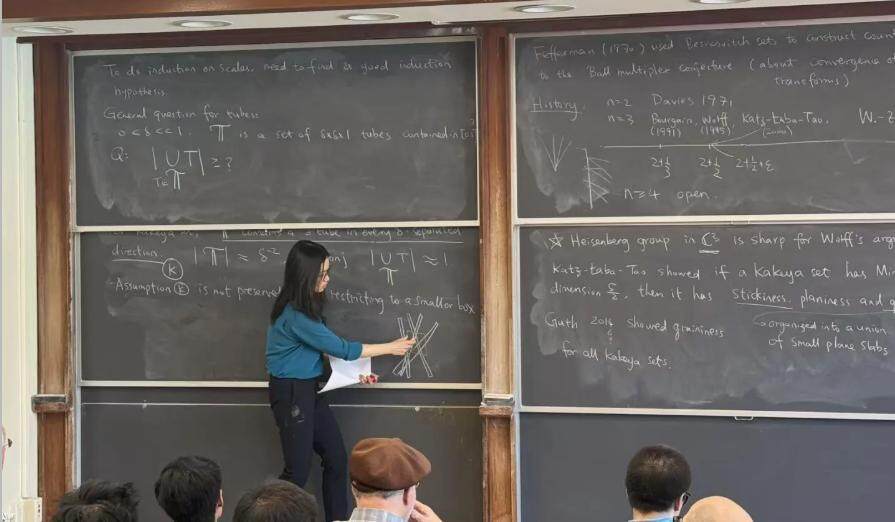 To do induction on scales, need to find a good induction
hypothesis.
General question for tubes:
0 < δ << 1. 𝕋 is a set of δxδx1 tubes contained in
Q: | ∪ T | ≥ ?
T∈𝕋
Kakeya 𝕋 contains a δ-tube in every δ-separated
direction. |𝕋| ≈ δ⁻² | ∪ T | ≈ 1
𝕋
(K)
-Assumption (K) is not preserved restricting to a smaller box
Fefferman (1970) used Besicovitch sets to construct
to the Ball multiplier conjecture (about convergence of
transforms)
History. n=2 Davies 1971
n=3 Bourgain, Wolff, Katz-Łaba-Tao, W.-Z
(1991) (1995) (2000)
2+1/3 2+1/2 2+1/2+ε
n≥4 open.
☆ Heisenberg group in ℂ³ is sharp for Wolff's
Katz-Łaba-Tao showed if a Kakeya set has
dimension 5/2, then it has stickiness, planiness and
Guth 2016 showed graininess → organized into a union
of small plane slabs
for all Kakeya sets.